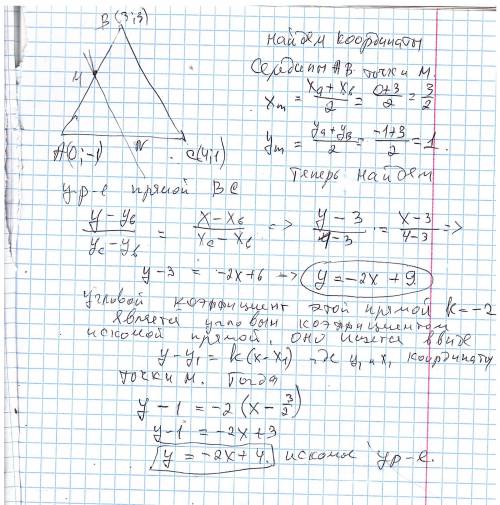 B (3;3)
M
N
A(0;-1)
C(4;1)
найдем координаты
середины AB точки M.
xₘ = (xₐ + xᵦ)/2 = (0+3)/2 = 3/2
yₘ = (yₐ + yᵦ)/2 = (-1+3)/2 = 1.
Теперь найдем
ур-е прямой BC
(y - yᵦ)/(y_c - yᵦ) = (x - xᵦ)/(x_c - xᵦ) => (y - 3)/(1-3) = (x-3)/(4-3) =>
y-3 = -2x+6 => y = -2x + 9
Угловой коэффициент этой прямой k = -2
является угловым коэффициентом
искомой прямой, оно ищется ввиде
y - y₁ = k(x - x₁), где y₁ и x₁ координаты
точки M. Тогда
y - 1 = -2(x - 3/2)
y - 1 = -2x + 3
y = -2x + 4. искомое ур-е.